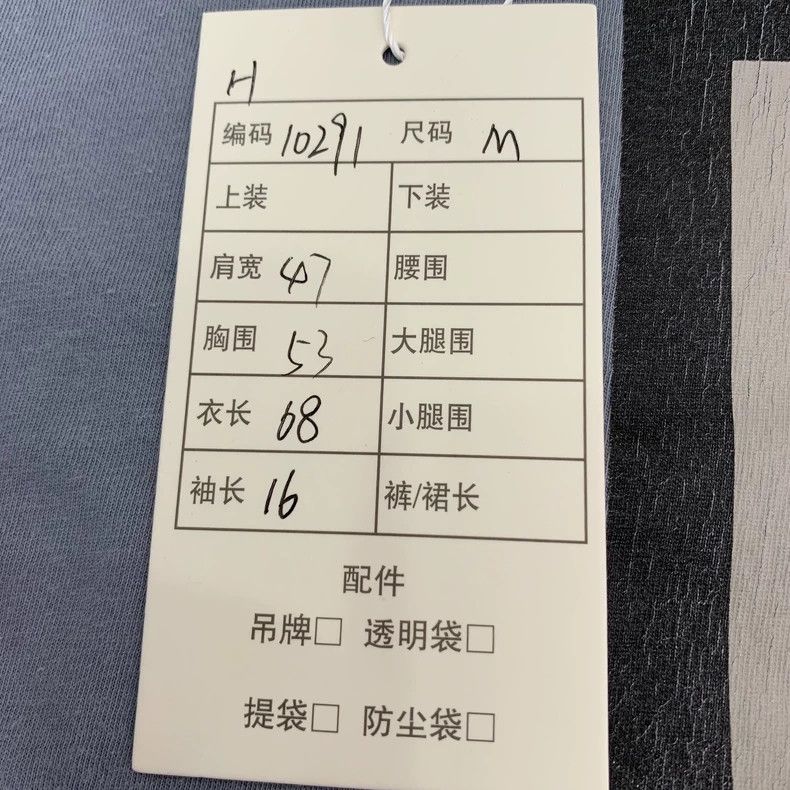 H
编码 10291 尺码 M
上装 下装
肩宽 47 腰围
胸围 53 大腿围
衣长 68 小腿围
袖长 16 裤/裙长
配件
吊牌□ 透明袋□
提袋□ 防尘袋□